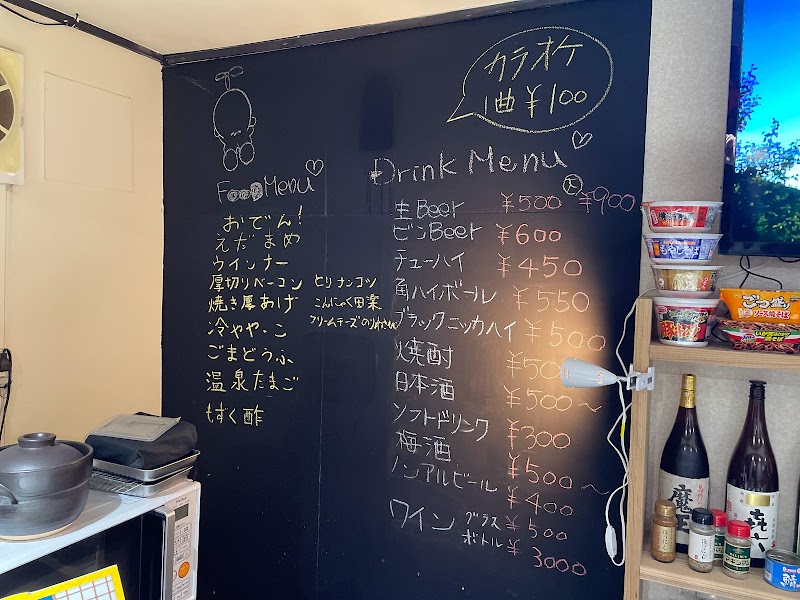 カラオケ
1曲 ¥100
Food Menu
おでん!
えだまめ
ウインナー
厚切りベーコン
焼き厚あげ
冷ややっこ
ごまどうふ
温泉たまご
もずく酢
とりナンコツ
こんにゃく田楽
クリームチーズのりわさび
Drink Menu
生Beer ¥500 大 ¥900
ビンBeer ¥600
チューハイ ¥450
角ハイボール ¥550
ブラックニッカハイ ¥500
焼酎 ¥500
日本酒 ¥500〜
ソフトドリンク ¥300
梅酒 ¥500〜
ノンアルビール ¥400
ワイン グラス ¥500
ボトル ¥3000
もやしそば
ごつ盛り
ソース焼そば
魔王
㐂六